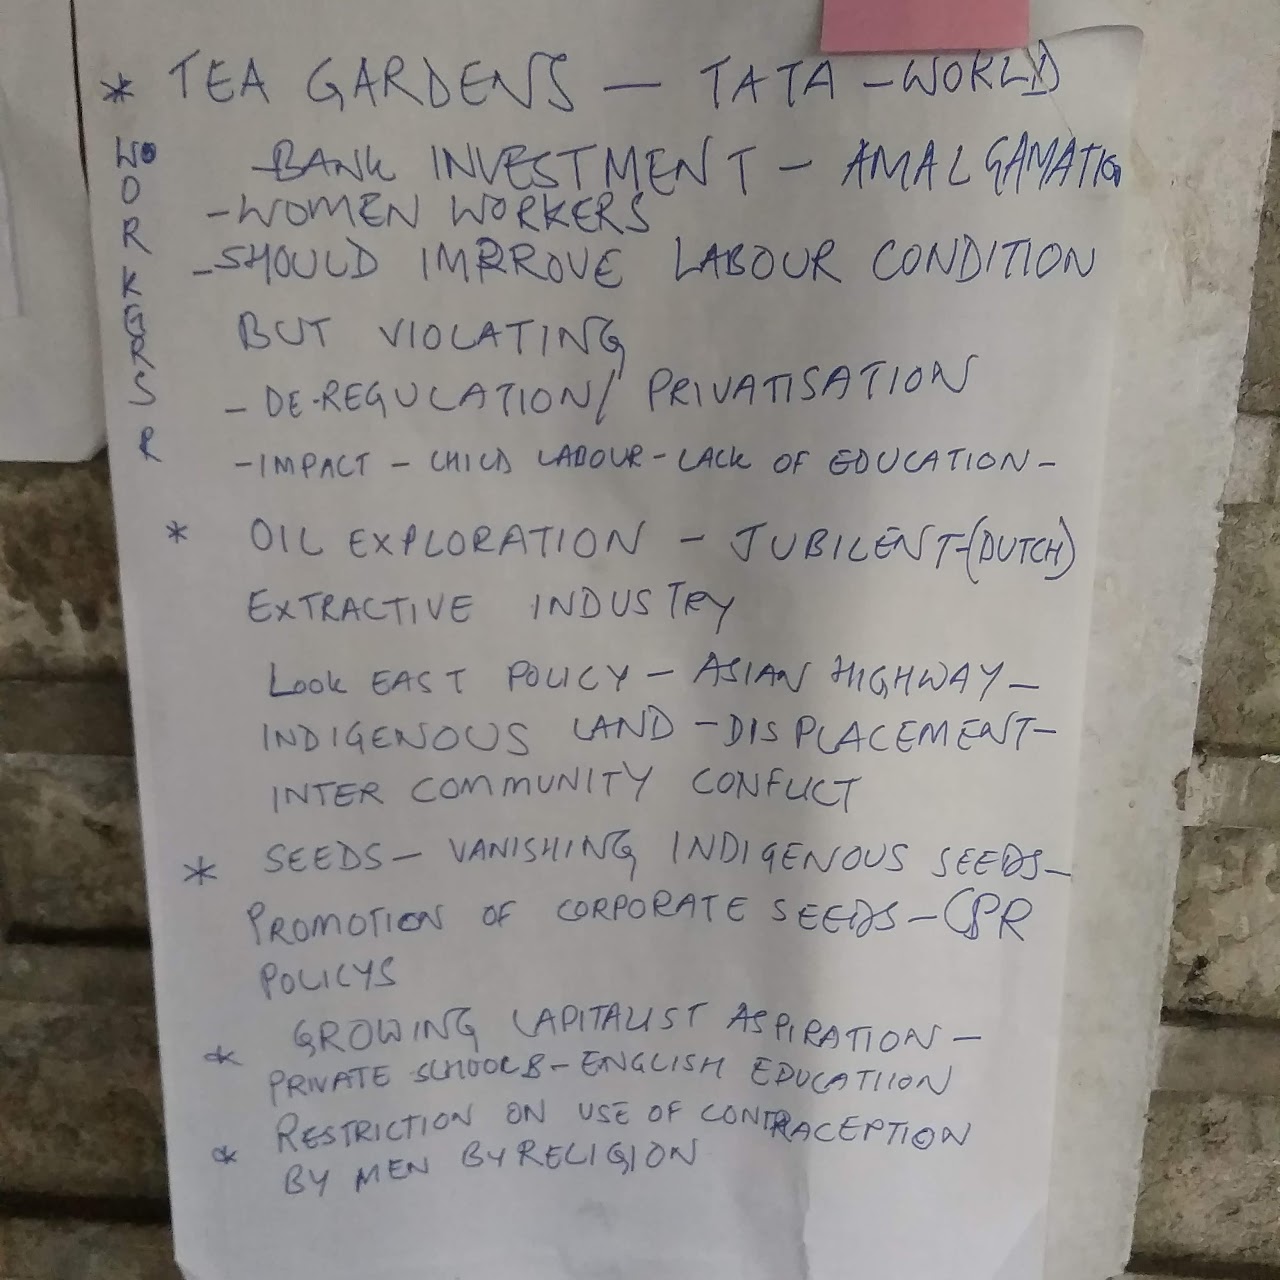 * TEA GARDENS - TATA - WORLD
BANK INVESTMENT - AMALGAMATIO
- WOMEN WORKERS
- SHOULD IMPROVE LABOUR CONDITION
BUT VIOLATING
- DE-REGULATION / PRIVATISATION
- IMPACT - CHILD LABOUR - LACK OF EDUCATION -
WORKERS R
* OIL EXPLORATION - JUBILENT - (DUTCH)
EXTRACTIVE INDUSTRY
LOOK EAST POLICY - ASIAN HIGHWAY -
INDIGENOUS LAND - DISPLACEMENT -
INTER COMMUNITY CONFLICT
* SEEDS - VANISHING INDIGENOUS SEEDS -
PROMOTION OF CORPORATE SEEDS -
POLICYS
* GROWING CAPITALIST ASPIRATION -
PRIVATE SCHOOLS - ENGLISH EDUCATIION
* RESTRICTION ON USE OF CONTRACEPTION
BY MEN BY RELIGION